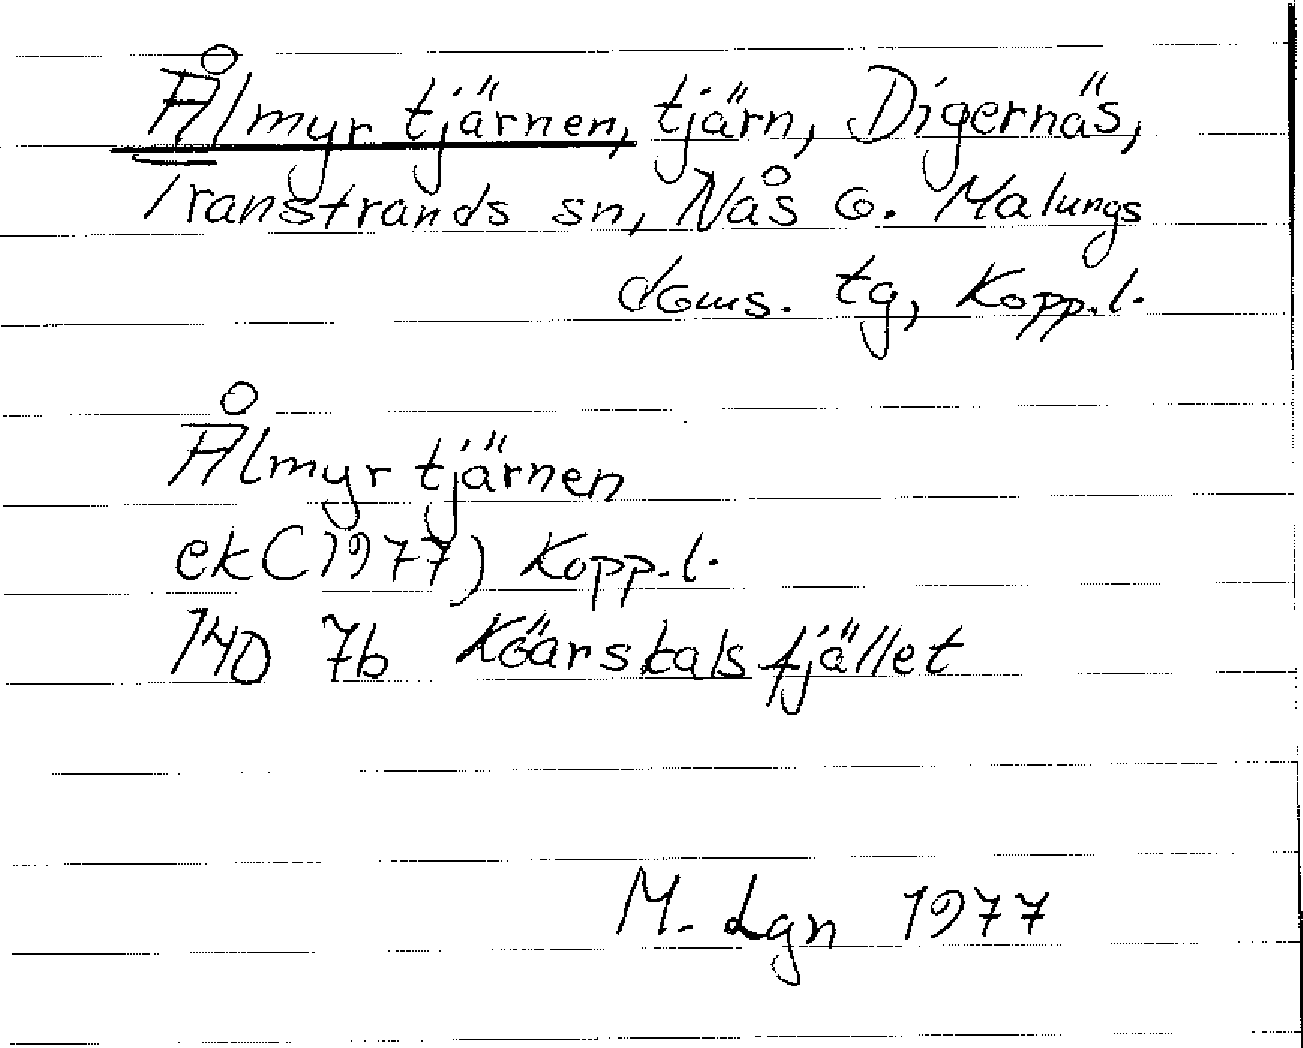 Ålmyrtjärnen, tjärn, Digernäs,
Transtrands sn, Nås o. Malungs
doms. tg, Kopp.l.
Ålmyrtjärnen
ek (1977) Kopp.l.
14D 7b Köarskalsfjället
M. Lgn 1977